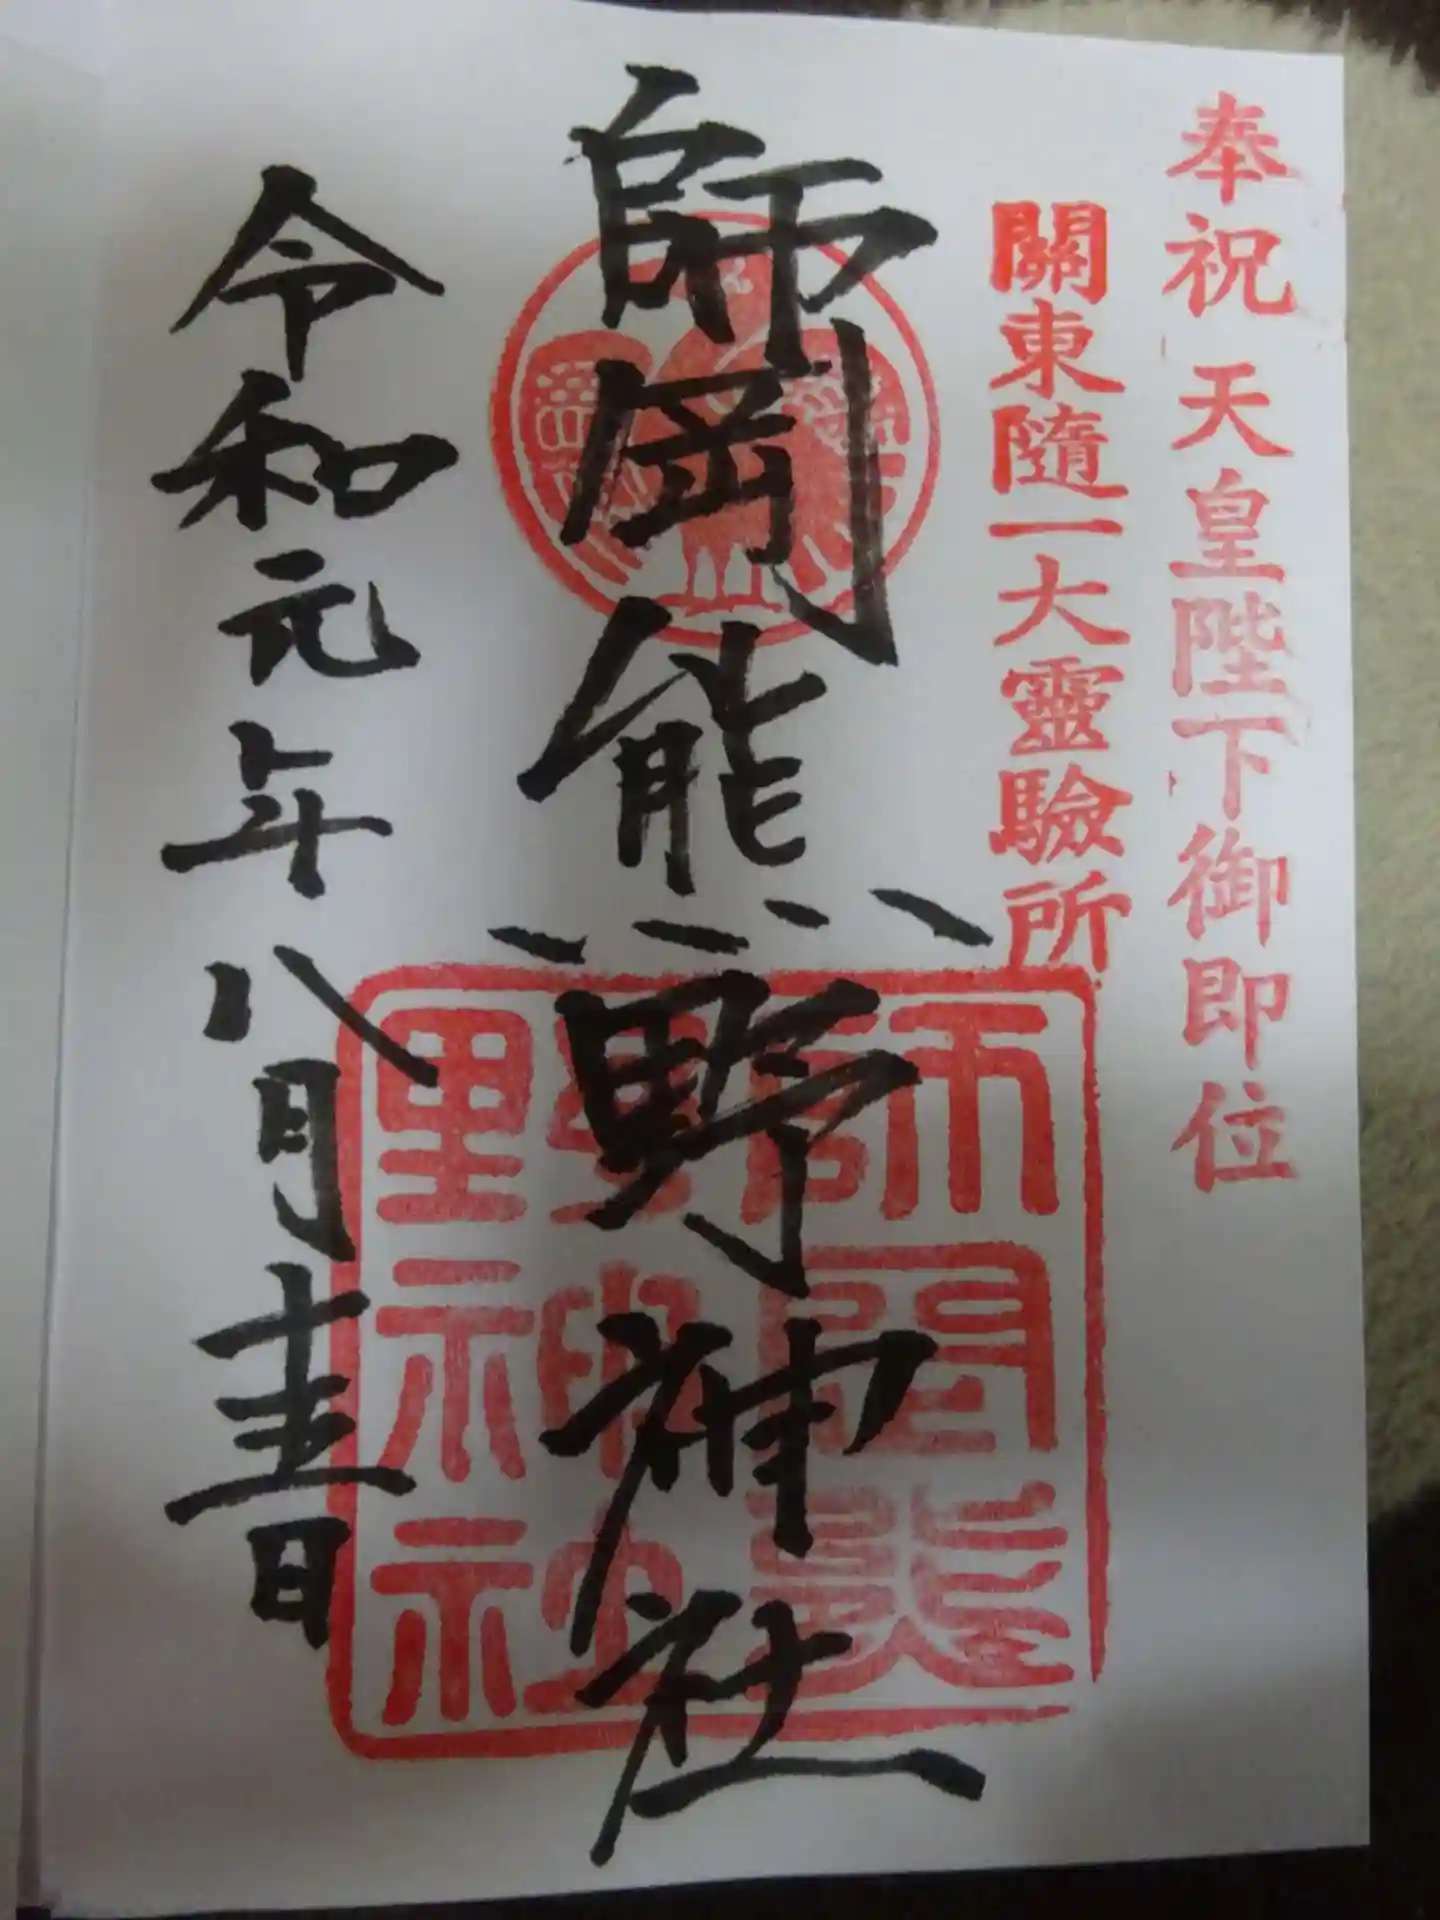 奉祝 天皇陛下御即位
關東隨一大靈驗所
師岡熊野神社
師岡熊野神社
令和元年八月
日